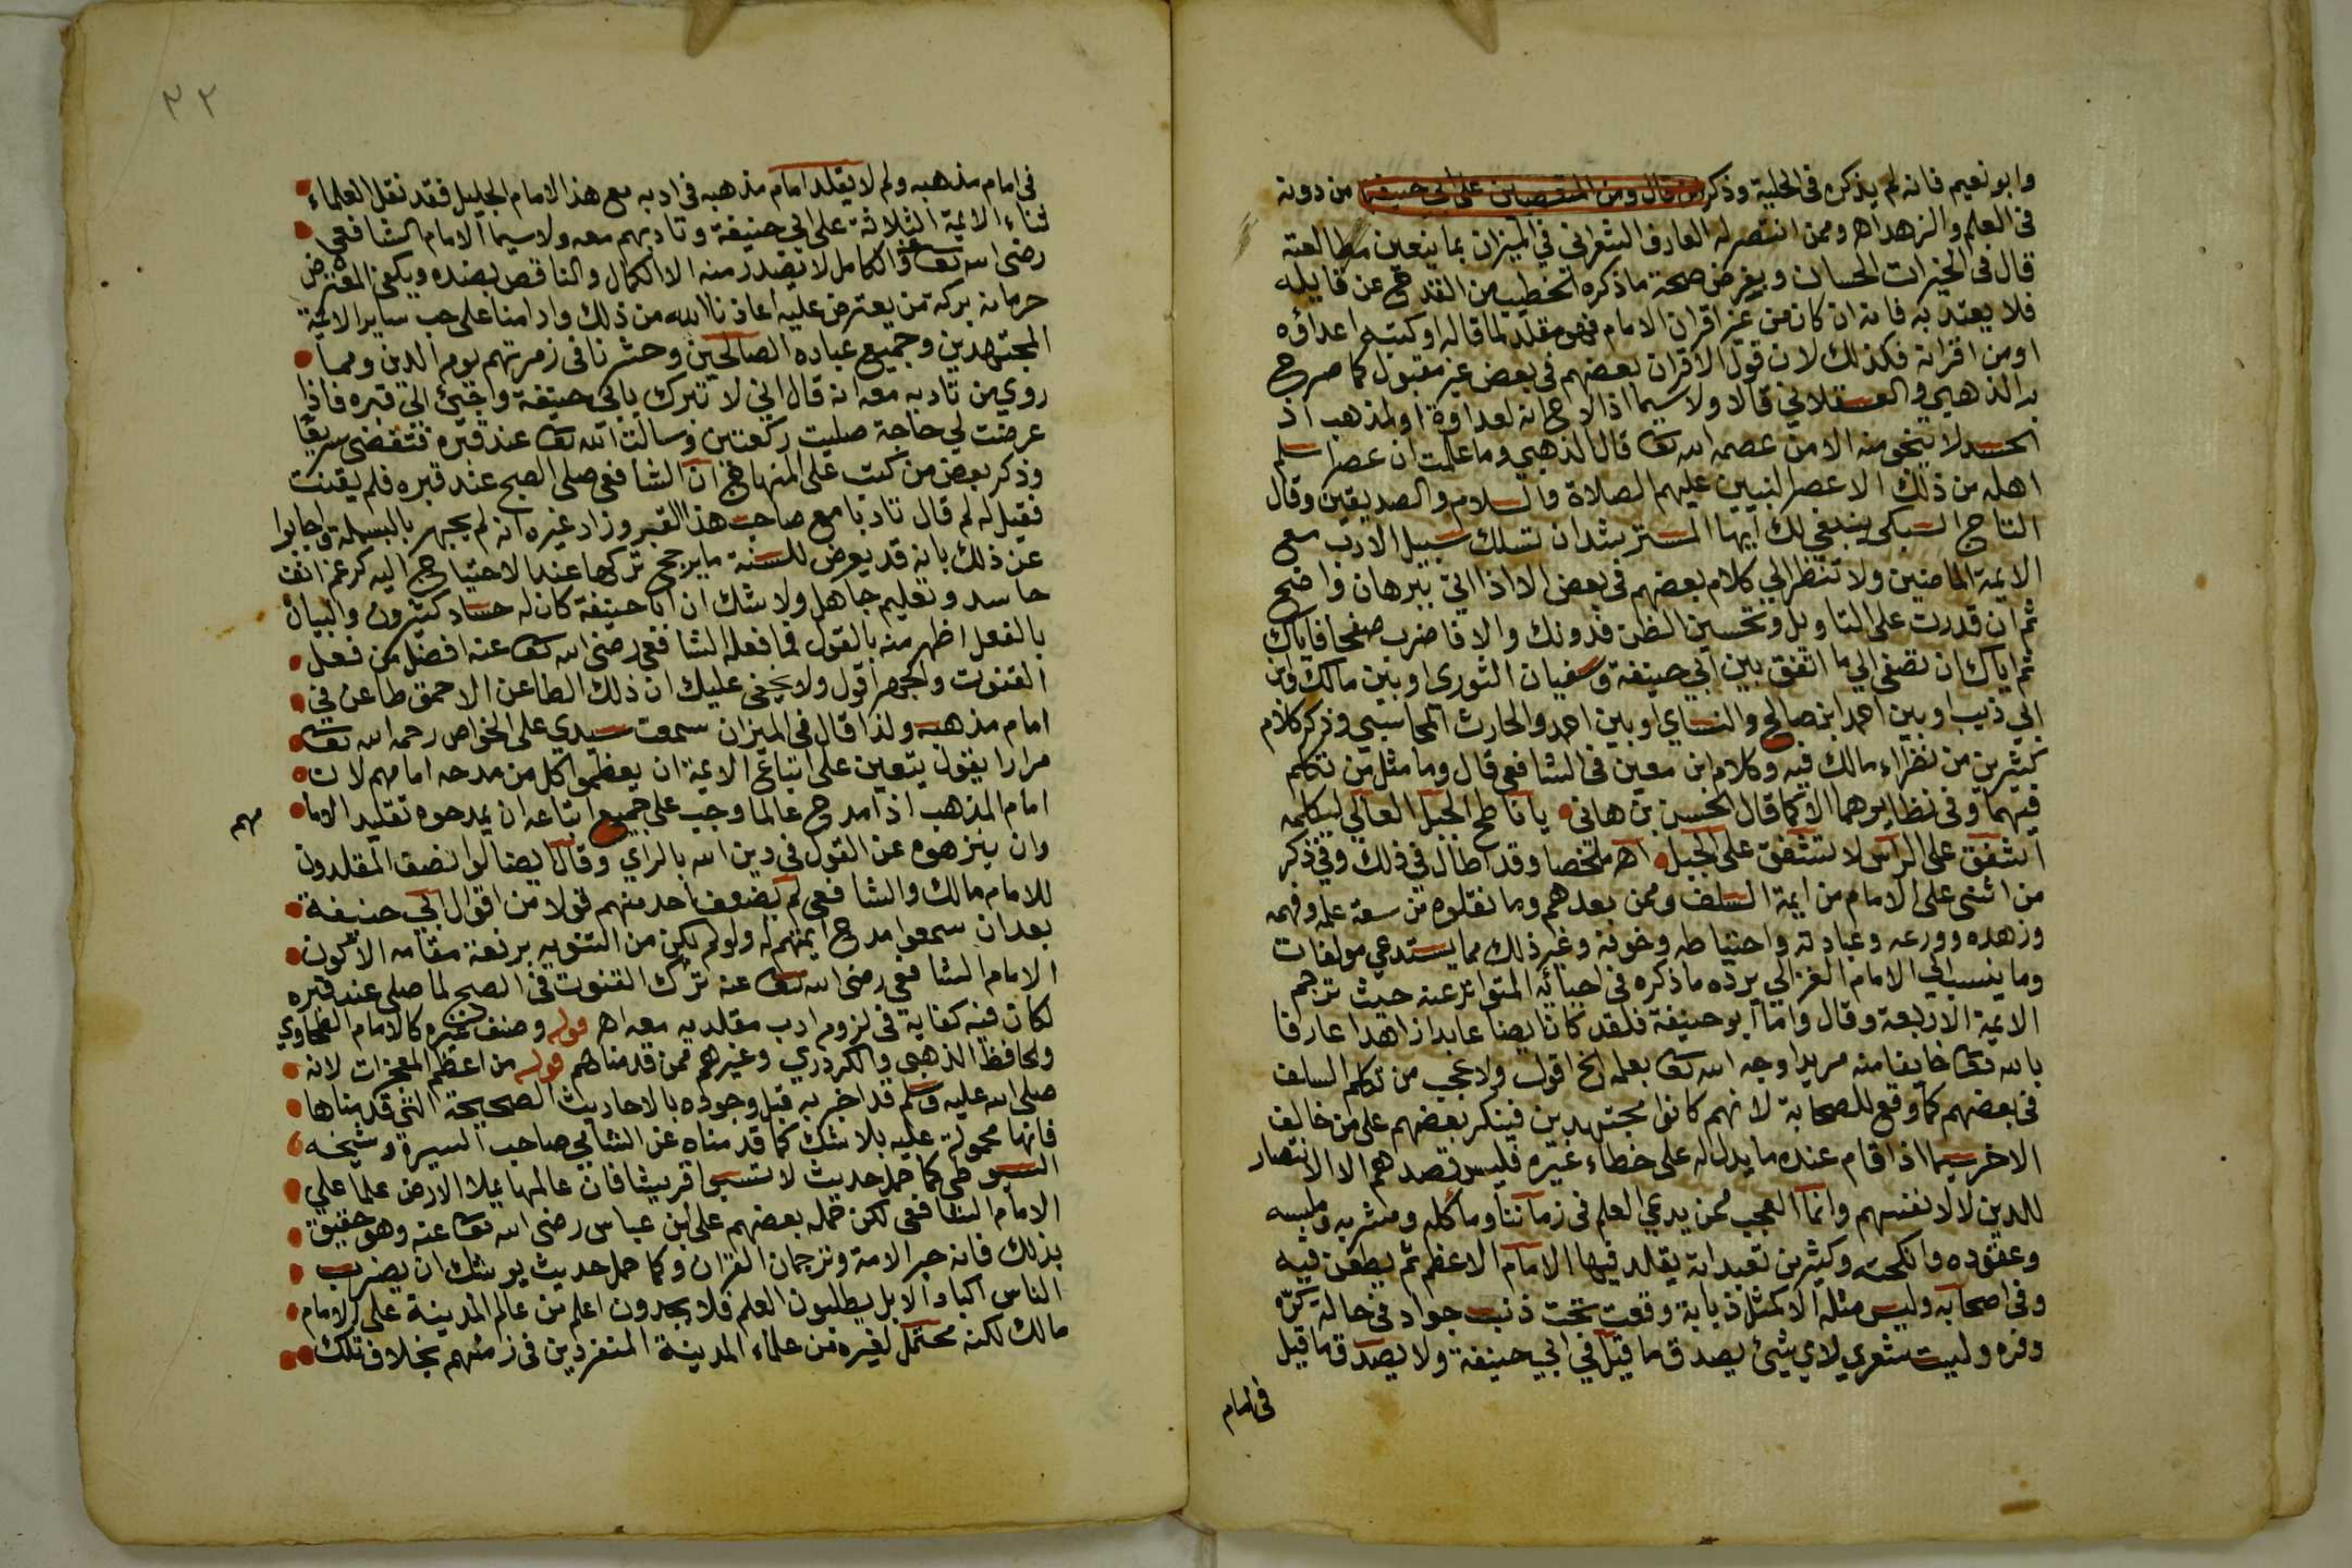 وابو نعيم فانه لم يذكره في الحلية وذكر من قال ومن المتعصبين على ابي حنيفة من دونه
في العلم والزهد اهـ وممن انتصر له العارف الشعراني في الميزان بما يتعين مطالعته
قال في الخيرات الحسان وبفرض صحة ما ذكره الخطيب من القدح عن قايله
فلا يعتد به فانه ان كان من غير اقران الامام فهو مقلد لما قاله او كتبه اعداؤه
او من اقرانه فكذلك لان قول الاقران بعضهم في بعض غير مقبول كما صرح
به الذهبي والعسقلاني قالا ولا سيما اذا لاح انه لعداوة او لمذهب اذ
الحسد لا ينجو منه الا من عصمه الله تعا قال الذهبي وما علمت ان عصرا سلم
اهله من ذلك الا عصر النبيين عليهم الصلاة والسلام والصديقين وقال
التاج السبكي ينبغي لك ايها المسترشد ان تسلك سبيل الادب مع
الايمة الماضين ولا تنظر الي كلام بعضهم في بعض الا اذا اتي ببرهان واضح
ثم ان قدرت على التاويل وتحسين الظن فدونك والا فاضرب صفحا فاياك
ثم اياك ان تصغي الي ما اتفق بين ابي حنيفة وسفيان الثوري او بين مالك وابن
ابي ذيب او بين احمد ابن صالح والنساي او بين احمد والحارث المحاسبي وذكر كلام
كثيرين من نظراء مالك فيه وكلام ابن معين في الشافعي قال وما مثل من تكلم
فيهما وفي نظايرهما الا كما قال الحسن بن هاني يا ناطح الجبل العالي ليكلمه
اشفق على الراس لا تشفق على الجبل اهـ ملخصا وقد اطال في ذلك وفي ذكر
من اثنى على الامام من ايمة السلف وممن بعدهم وما نقلوه من سعة علمه وفهمه
وزهده وورعه وعبادته واحتياطه وخوفه وغير ذلك مما يستدعي مولفات
وما ينسب الي الامام الغزالي يرده ما ذكره في احيائه المتواتر عنه حيث ترجم
الايمة الاربعة وقال واما ابو حنيفة فلقد كان ايضا عابدا زاهدا عارفا
بالله تعا خايفا منه مريدا وجه الله تعا بعلمه الخ اقول ولا عجب من تكلم السلف
في بعضهم كما وقع للصحابة لانهم كانوا مجتهدين فينكر بعضهم على من خالف
الاخر سيما اذا قام عنده ما يدل له على خطاء غيره فليس قصدهم الا الانتصار
للدين لا لانفسهم وانما العجب ممن يدعي العلم في زماننا وماكله ومشربه وملبسه
وعقوده وانكحته وكثير من تعبداته يقلد فيها الامام الاعظم ثم يطعن فيه
وفي اصحابه وليس مثله الا كمثل ذبابة وقعت تحت ذنب جواد في حالة كرّه
وفره وليت شعري لاي شيئ يصدق ما قيل في ابي حنيفة ولا يصدق ما قيل
في امام
٣٢
في امام مذهبه ولم لا يقلد امام مذهبه في ادبه مع هذا الامام الجليل فقد نقل العلماء
ثناء الايمة الثلاثة على ابي حنيفة وتادبهم معه ولا سيما الامام الشافعي
رضي الله تعا عنه والكامل لا يصدر منه الا الكمال والناقص بضده ويكفي المعترض
حرمانه بركة من يعترض عليه اعاذنا الله من ذلك وادامنا على حب ساير الايمة
المجتهدين وجميع عباده الصالحين وحشرنا في زمرتهم يوم الدين ومما
روي من تادبه معه انه قال اني لا تبرك بابي حنيفة واجئ الي قبره فاذا
عرضت لي حاجة صليت ركعتين وسالت الله تعا عند قبره فتقضى سريعا
وذكر بعض من كتب على المنهاج ان الشافعي صلى الصبح عند قبره فلم يقنت
فقيل له لم قال تادبا مع صاحب هذا القبر وزاد غيره انه لم يجهر بالبسملة واجابوا
عن ذلك بانه قد يعرض للسنة ما يرجح تركها عند الاحتياج اليه كرغم انف
حاسد وتعليم جاهل ولا شك ان ابا حنيفة كان له حساد كثيرون والبيان
بالفعل اظهر منه بالقول فما فعله الشافعي رضي الله تعا عنه افضل من فعل
القنوت والجهر اقول ولا يخفى عليك ان ذلك الطاعن الاحمق طاعن في
امام مذهبه ولذا قال في الميزان سمعت سيدي علي الخواص رحمه الله تعا
مرارا يقول يتعين على اتباع الايمة ان يعظموا كل من مدحه امامهم لان
امام المذهب اذا مدح عالما وجب على جميع اتباعه ان يمدحوه تقليد الاما
مهم
وان ينزهوه عن القول في دين الله بالراي وقال ايضا لو انصف المقلدون
للامام مالك والشافعي لم يضعف احد منهم قولا من اقوال ابي حنيفة
بعد ان سمعوا مدح ايمتهم له ولو لم يكن من التنويه برفعة مقامه الا كون
الامام الشافعي رضي الله تعا عنه ترك القنوت في الصبح لما صلى عند قبره
لكان فيه كفاية في لزوم ادب مقلديه معه اهـ قوله وصنف غيره كالامام الطحاوي
والحافظ الذهبي والكردري وغيرهم ممن قدمناهم قوله من اعظم المعجزات لانه
صلى الله عليه وسلم قد اخبر به قبل وجوده بالاحاديث الصحيحة التي قدمناها
فانها محمولة عليه بلا شك كما قدمناه عن الشامي صاحب السيرة وشيخه
السيوطي كما حمل حديث لا تسبوا قريشا فان عالمها يملا الارض علما علي
الامام الشافعي لكن حمله بعضهم على ابن عباس رضي الله تعا عنه وهو حقيق
بذلك فانه حبر الامة وترجمان القران وكما حمل حديث يوشك ان يضرب
الناس اكباد الابل يطلبون العلم فلا يجدون اعلم من عالم المدينة على الامام
مالك لكنه محتمل لغيره من علماء المدينة المنفردين في زمنهم بخلاف تلك